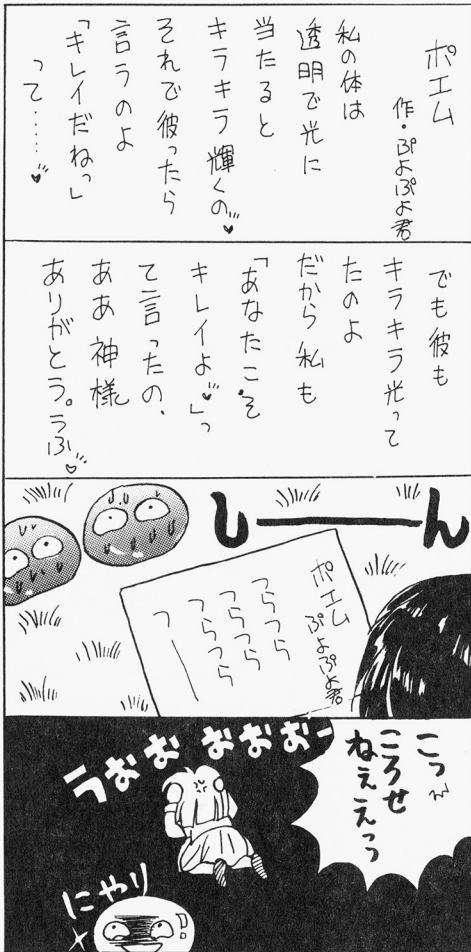 ポエム
作・ぷよぷよ君
私の体は
透明で光に
当たると
キラキラ輝くの♥
それで彼ったら
言うのよ
「キレイだねっ」
って……♥
でも彼も
キラキラ光って
たのよ
だから私も
「あなたこそ
キレイよ♥」っ
て言ったの、
ああ神様
ありがとう。うふ♥
しーーん
ポエム
ぷよぷよ君
つらつら
つらつら
つらつら
つーー
こっ
ころせ
ねぇえっっ
うおぉおぉおー
にやり